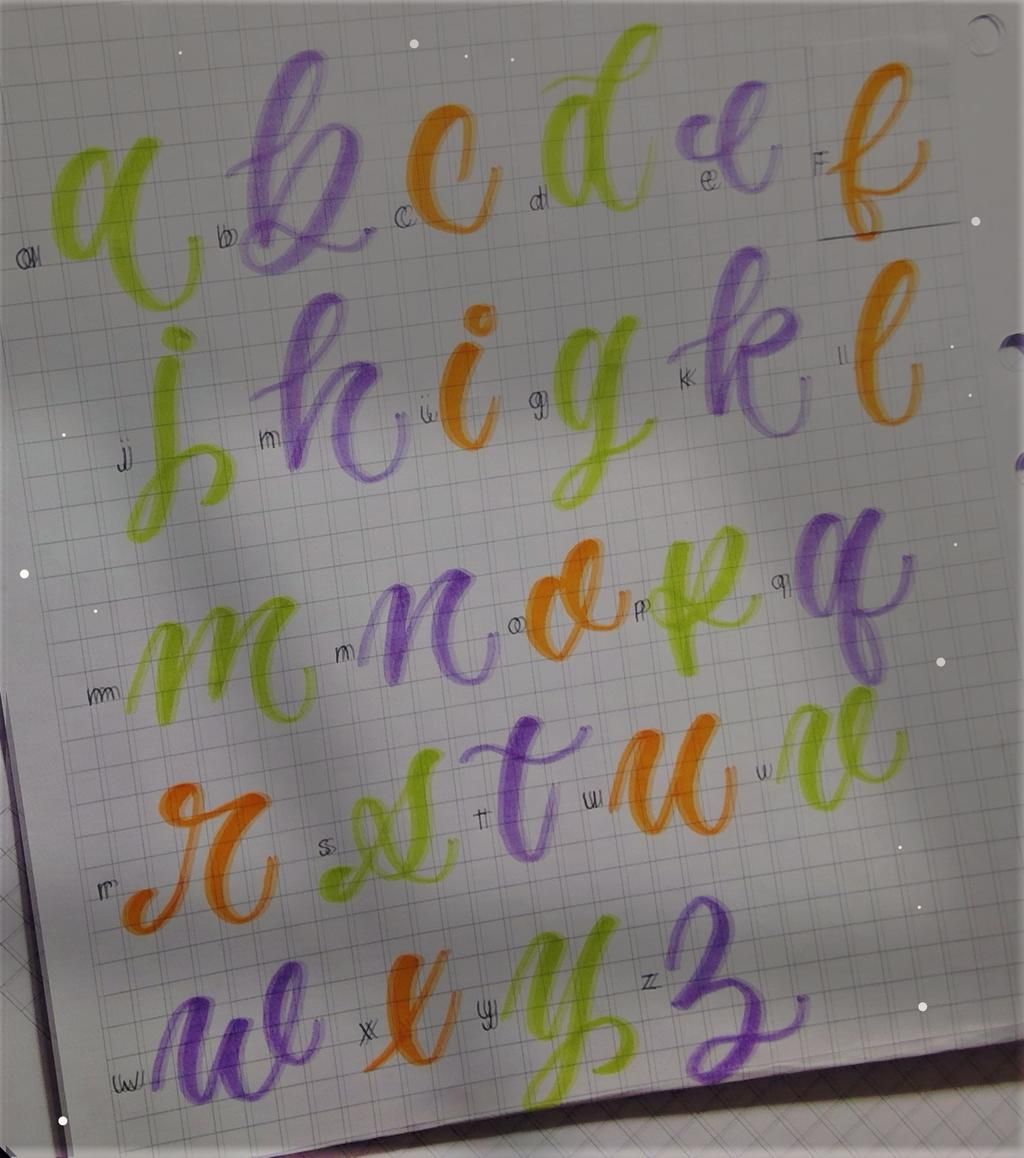 a a b b c c d d e e F f
j j h h i i g g k k l l
m m n n o o p p q q
r r s s t t u u v v
w w x x y y z z